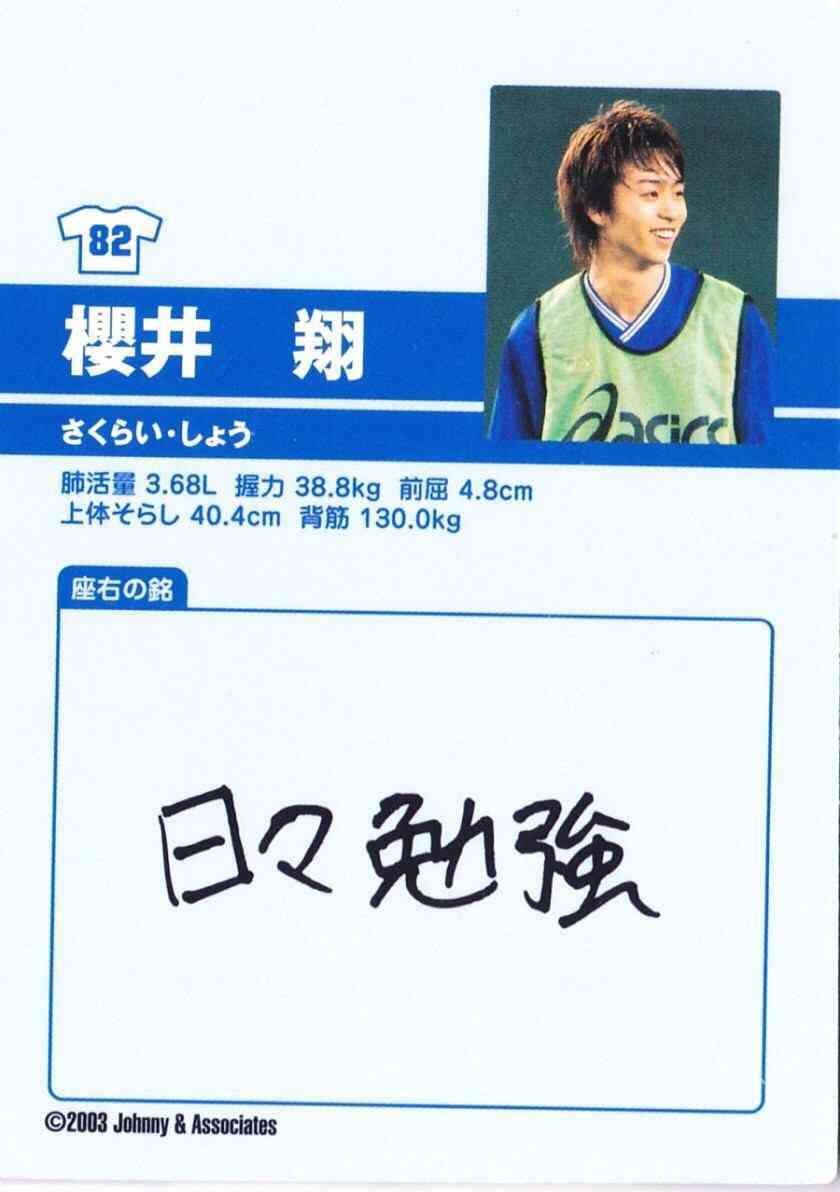 82
櫻井 翔
さくらい・しょう
asics
肺活量 3.68L 握力 38.8kg 前屈 4.8cm
上体そらし 40.4cm 背筋 130.0kg
座右の銘
日々勉強
©2003 Johnny & Associates